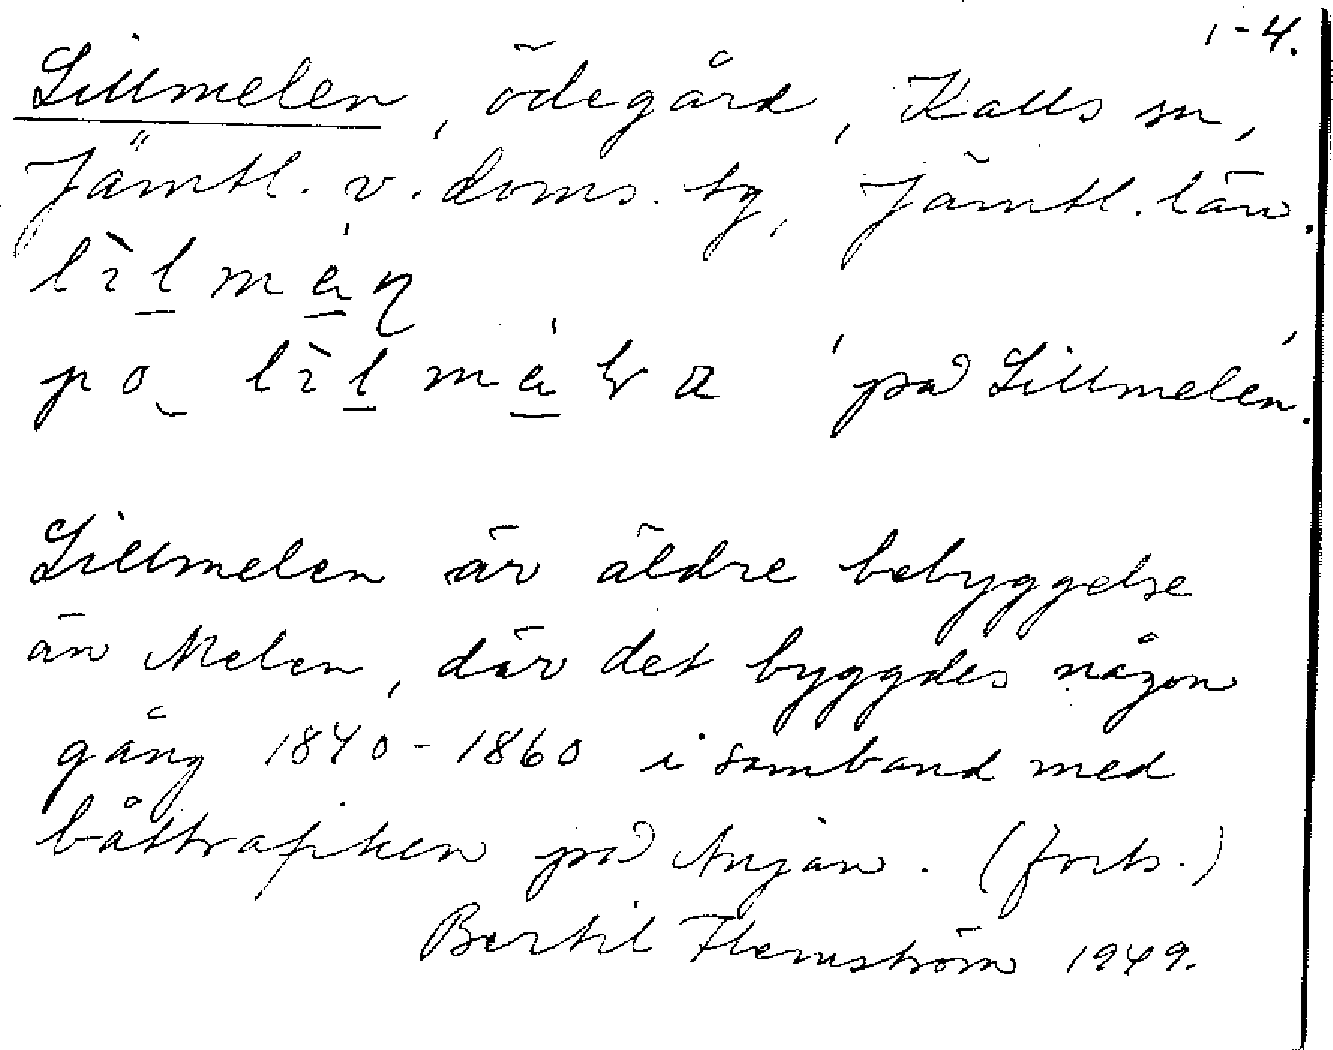 1-4.
Lillmelen, ödegård, Kalls sn,
Jämtl. v. doms. tg, Jämtl. län.
på Lillmelen.
Lillmelen är äldre bebyggelse
än Melen, där det byggdes någon
gång 1840-1860 i samband med
båttrafiken på Anjan. (forts.)
Bertil Flemström 1949.